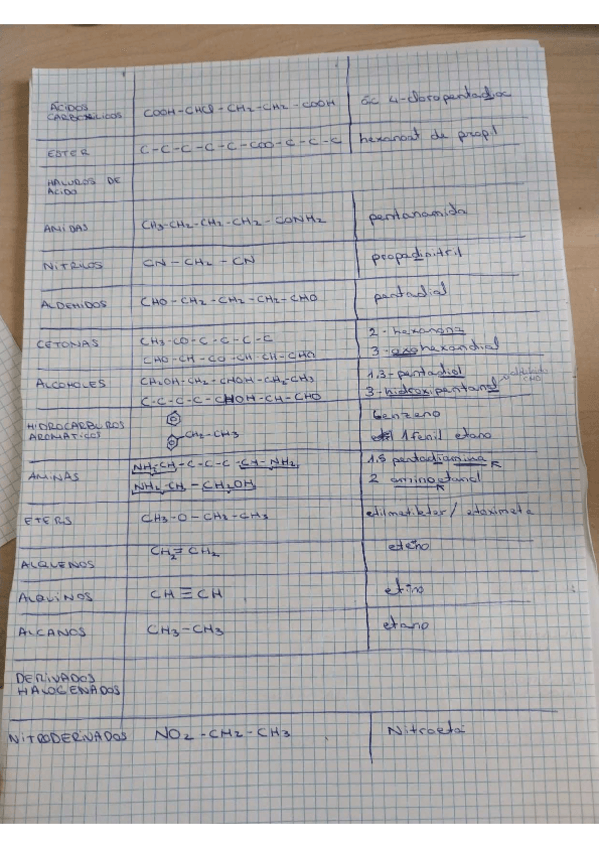 ÁCIDOS CARBOXILICOS COOH-CHCl-CH2-CH2-COOH àc 4-cloropentadioc
ESTER C-C-C-C-C-COO-C-C-C hexanoat de propil
HALUROS DE ACIDO
AMIDAS CH3-CH2-CH2-CH2-CONH2 pentanamida
NITRILOS CN-CH2-CN propadinitril
ALDEHIDOS CHO-CH2-CH2-CH2-CHO pentadial
CETONAS CH3-CO-C-C-C-C 2-hexanona
CHO-CH-CO-CH-CH-CHO 3-oxohexandial
ALCOHOLES CH2OH-CH2-CHOH-CH2-CH3 1,3-pentadiol
C-C-C-C-CHOH-CH-CHO 3-hidroxipentanal
HIDROCARBUROS AROMATICOS benzeno
CH2-CH3 1 fenil etano
AMINAS NH2-CH-C-C-C-CH-NH2 1,5 pentadiamina
NH2-CH-CH2OH 2 aminoetanol
ETERS CH3-O-CH2-CH3 etilmetileter / etoximeta
ALQUENOS CH2=CH2 eteno
ALQUINOS CH≡CH etino
ALCANOS CH3-CH3 etano
DERIVADOS HALOGENADOS
NITRODERIVADOS NO2-CH2-CH3 Nitroetà